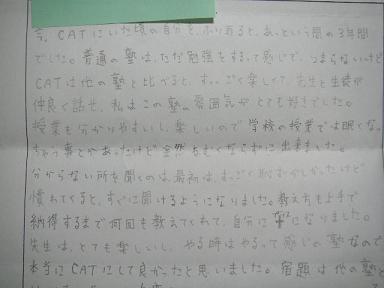 今、CATにいた頃の自分をふりかえると、あっという間の3年間
でした。普通の塾は、ただ勉強をするって感じで、つまらないけど
CATは他の塾と比べると、すっごく楽しくて、先生と生徒が
仲良く話せ、私はこの塾の雰囲気がとても好きでした。
授業も分かりやすいし、楽しいので学校の授業では眠くな
ちゃう事とかあったけど全然ねむくならずに出来ました。
分からない所を聞くのは、最初は、すっごく恥ずかしかったけど
慣れてくると、すぐに聞けるようになりました。教え方も上手で
納得するまで何回も教えてくれて、自分に なりました。
先生は、とても楽しいし、やる時はやるって感じの塾なので
本当にCATにして良かったと思いました。宿題は他の塾と